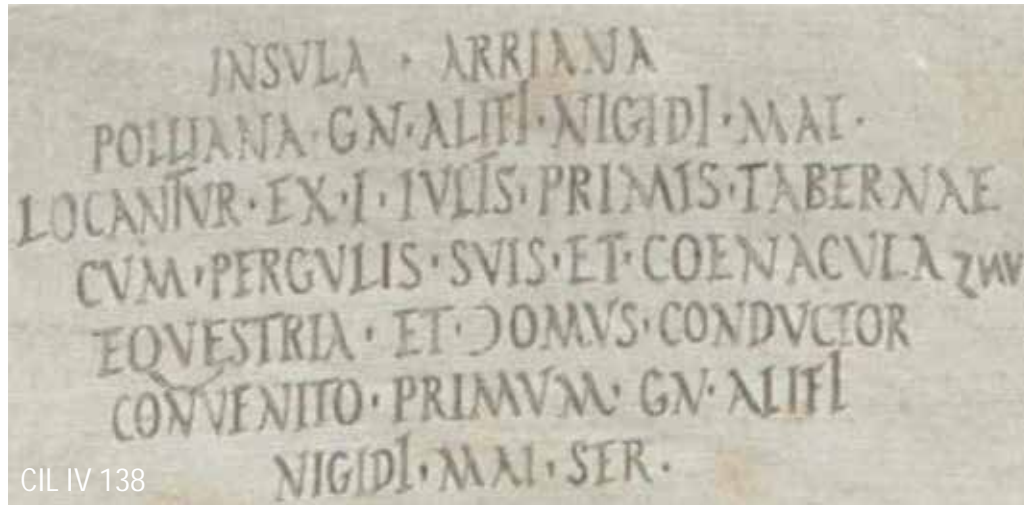 INSVLA · ARRIANA
POLLIANA · GN · ALIFI · NIGIDI · MAI ·
LOCANTVR · EX · I · IVLIS · PRIMIS · TABERNAE
CVM · PERGVLIS · SVIS · ET · COENACVLA
EQVESTRIA · ET · DOMVS · CONDVCTOR
CONVENITO · PRIMVM · GN · ALIFI
NIGIDI · MAI · SER ·
CIL IV 138